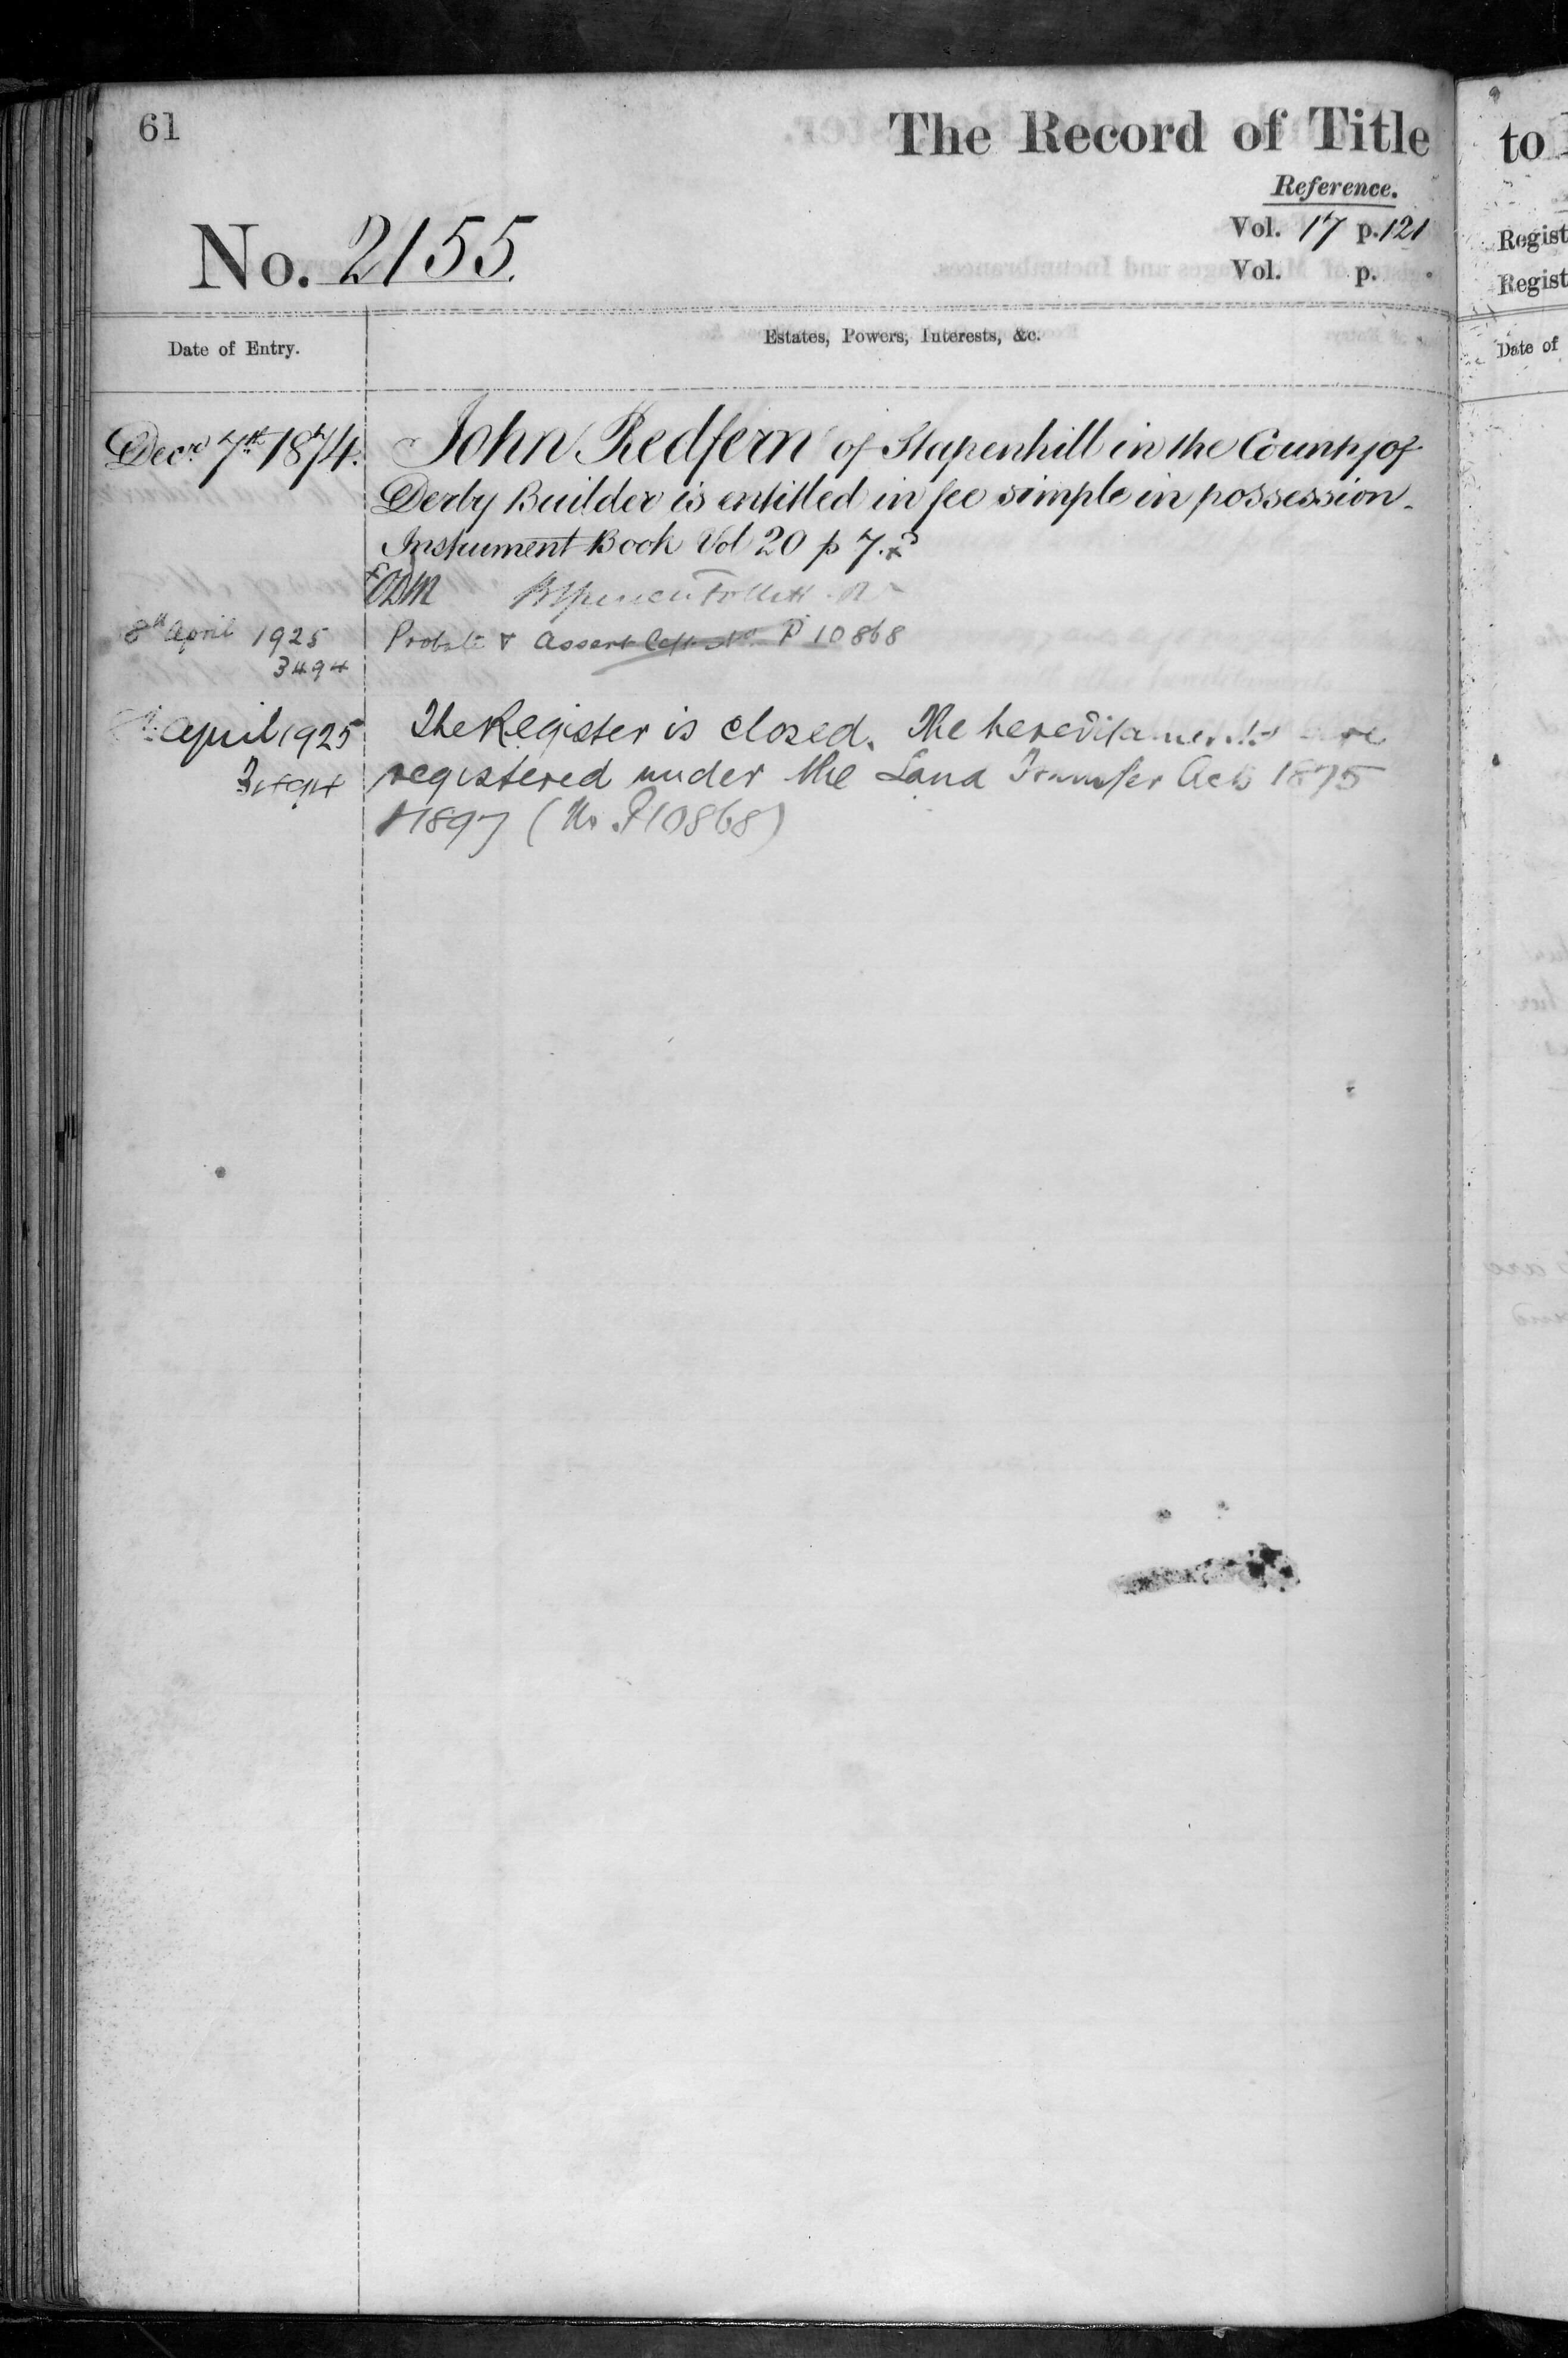 61
The Record of Title
Reference.
No. 2155.
Vol. 17 p. 121
Vol. p.
Date of Entry.
Estates, Powers, Interests, &c.
Decr. 7th 1874. John Redfern of Stapenhill in the County of
Derby Builder is entitled in fee simple in possession.
Instrument Book Vol 20 p 7.
Follett R
8th April 1925 Probate & Assent left P 10868
3494
April 1925 The Register is closed. The hereditaments are
3494 registered under the Land Transfer Acts 1875
& 1897 (No P10868)
to
Regist
Regist
Date of